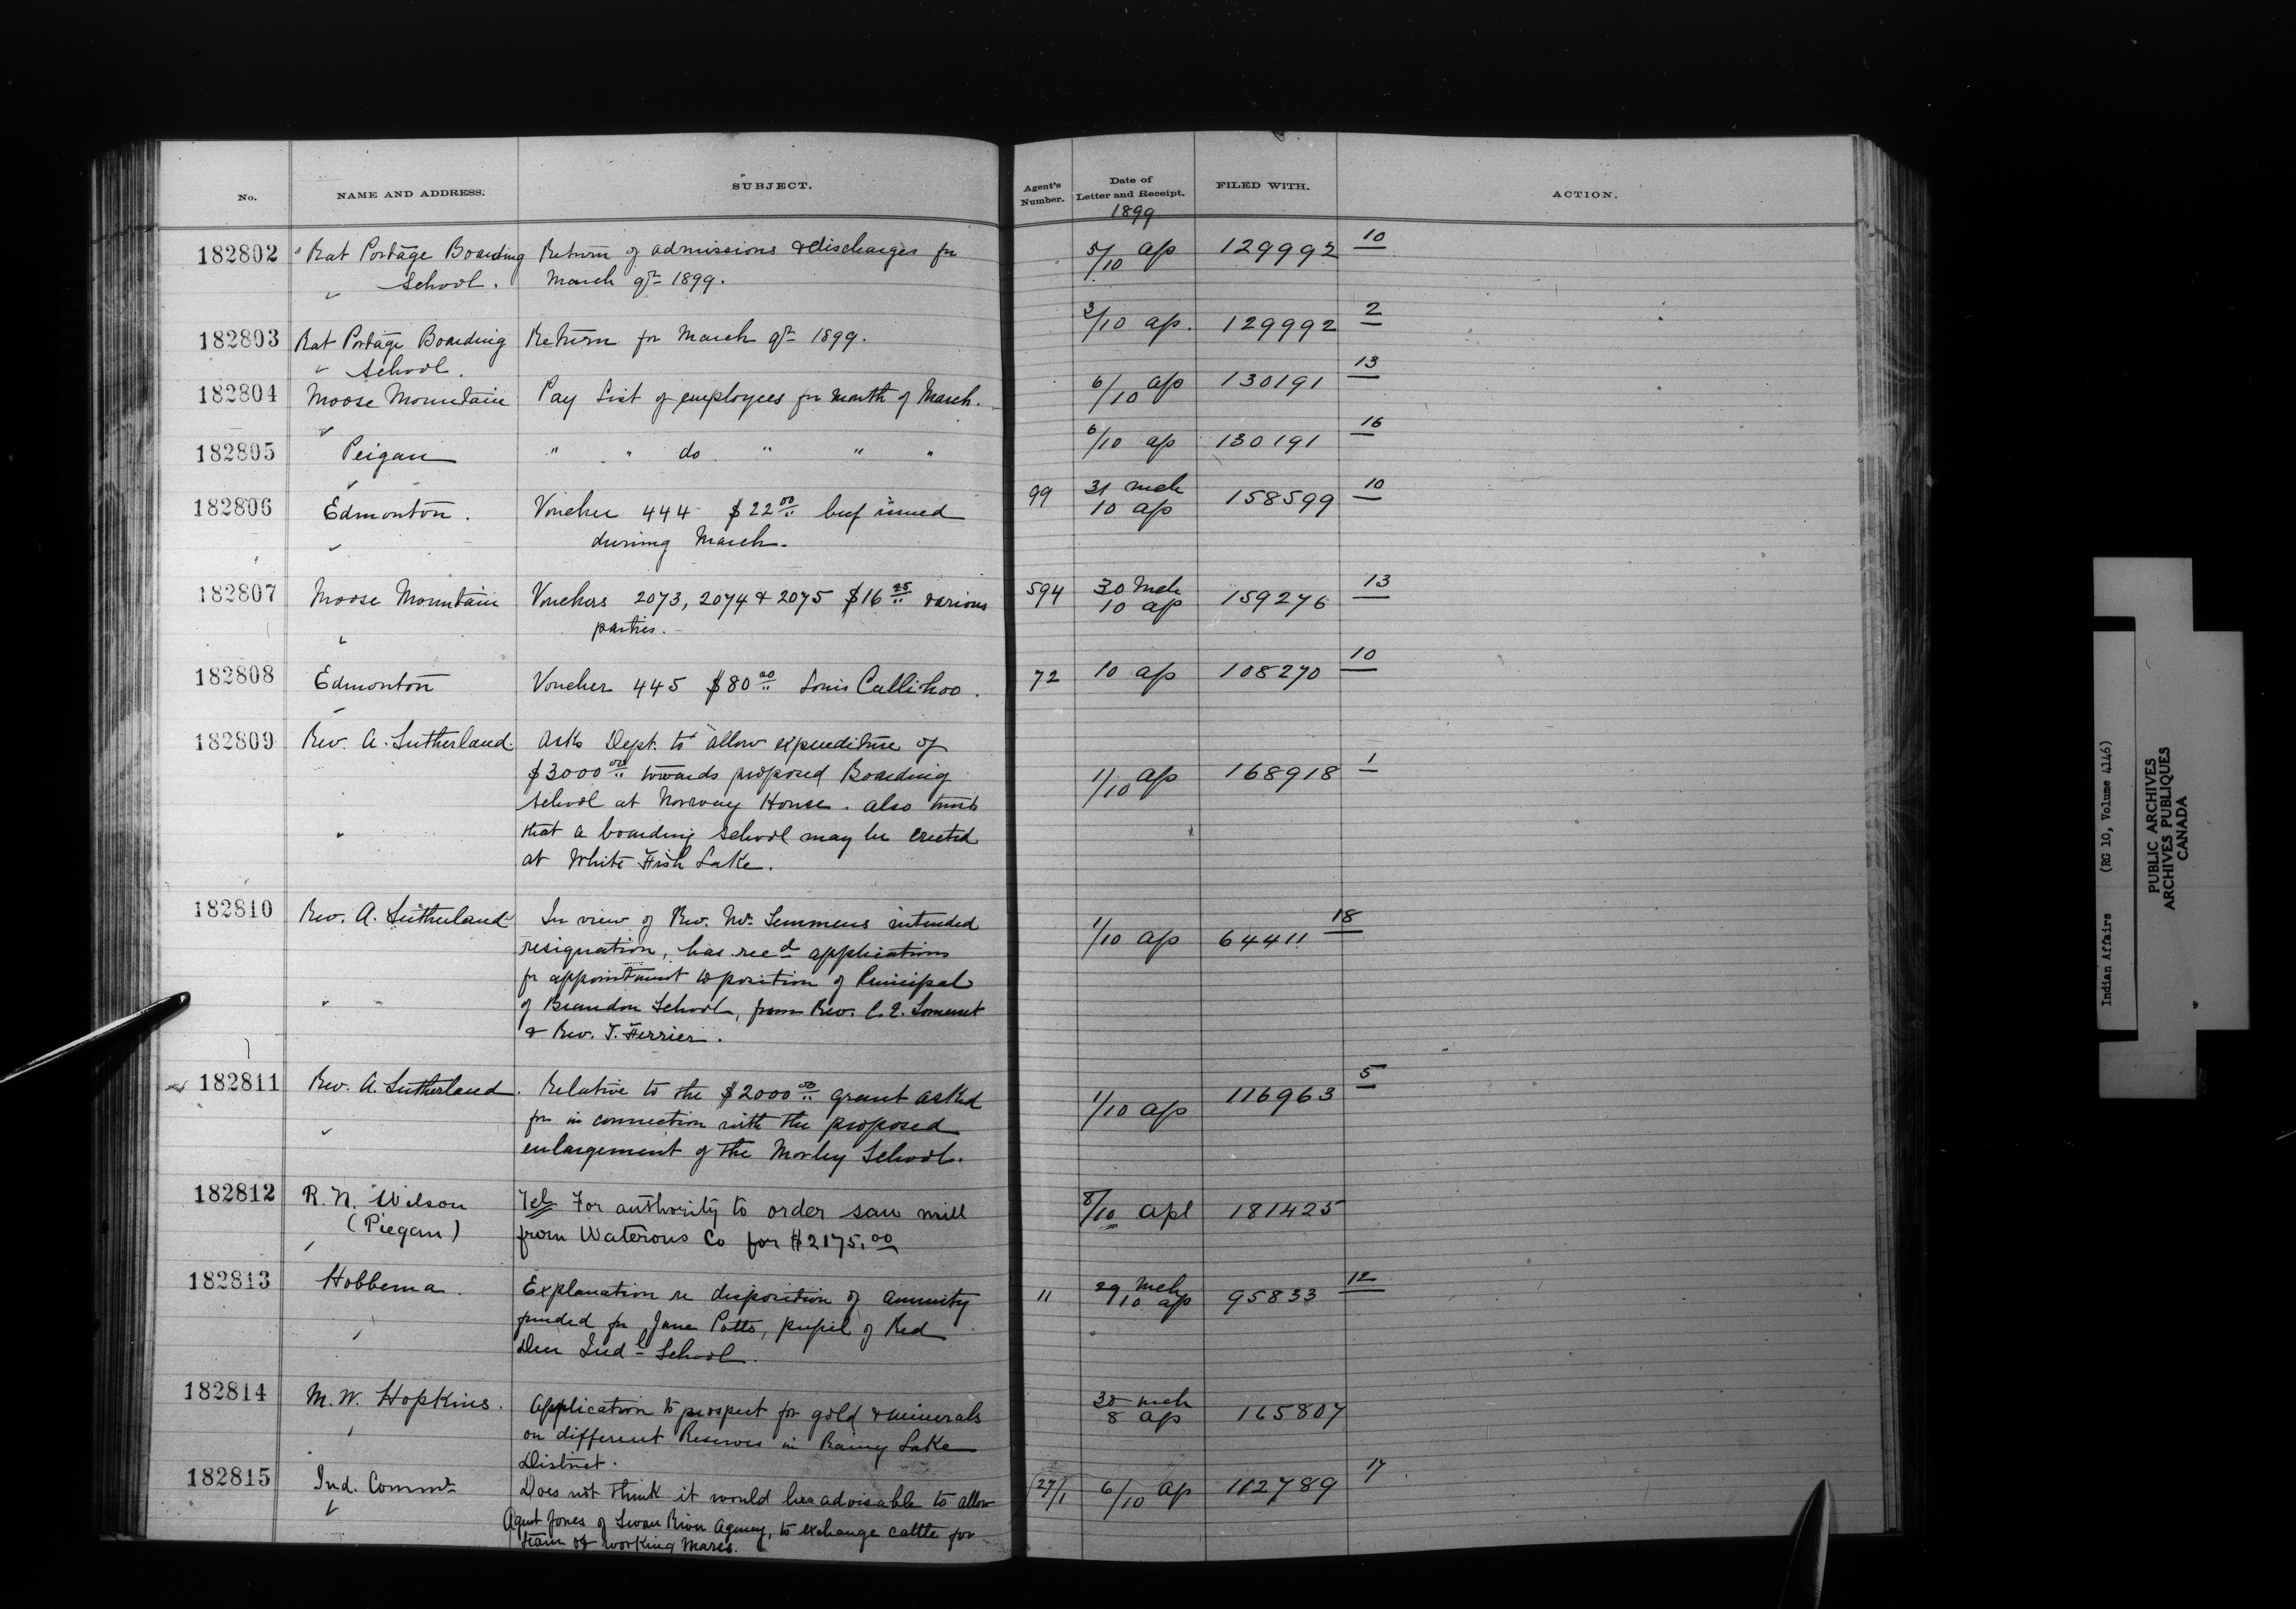 No. NAME AND ADDRESS. SUBJECT. Agent's Number. Date of Letter and Receipt. FILED WITH. ACTION.
1899
182802 Rat Portage Boarding Return of admissions & discharges for 5/10 ap 129992 10
School. March qr 1899.
182803 Rat Portage Boarding Return for March qr 1899. 3/10 ap. 129992 2
School.
182804 Moose Mountain Pay List of employees for month of March. 6/10 ap 130191 13
182805 Peigan " " do " " " 6/10 ap 130191 16
182806 Edmonton. Voucher 444 $22.00 beef issued 99 31 mch 158599 10
during March. 10 ap
182807 Moose Mountain Vouchers 2073, 2074 & 2075 $16.25 various 594 30 Mch 159276 13
parties. 10 ap
182808 Edmonton Voucher 445 $80.00 Louis Callihoo. 72 10 ap 108270 10
182809 Rev. A. Sutherland. Asks Dept. to allow expenditure of
$3000.00 towards proposed Boarding 1/10 ap 168918 1
School at Norway House. also trusts
that a boarding school may be erected
at White Fish Lake.
182810 Rev. A. Sutherland In view of Rev. Mr. Semmens intended 1/10 ap 64411 18
resignation, has recd applications
for appointment to position of Principal
of Brandon School, from Rev. C. E. Somerset
& Rev. T. Ferrier.
182811 Rev. A. Sutherland. Relative to the $2000.00 grant asked 1/10 ap 116963 5
for in connection with the proposed
enlargement of the Morley School.
182812 R. N. Wilson Tel For authority to order saw mill 8/10 apl 181425
(Piegan) from Waterous Co for $2175.00
182813 Hobbema. Explanation re disposition of annuity 11 29 Mch 95833 12
funded for Jane Potts, pupil of Red 10 ap
Deer Indl School.
182814 M. W. Hopkins. Application to prospect for gold & minerals 30 mch 165807
on different Reserves in Rainy Lake 8 ap
District.
182815 Ind. Commr Does not think it would be advisable to allow 27/1 6/10 ap 112789 17
Agent Jones of Swan River Agency, to exchange cattle for
team of working mares.
Indian Affairs (RG 10, Volume 4146)
PUBLIC ARCHIVES
ARCHIVES PUBLIQUES
CANADA